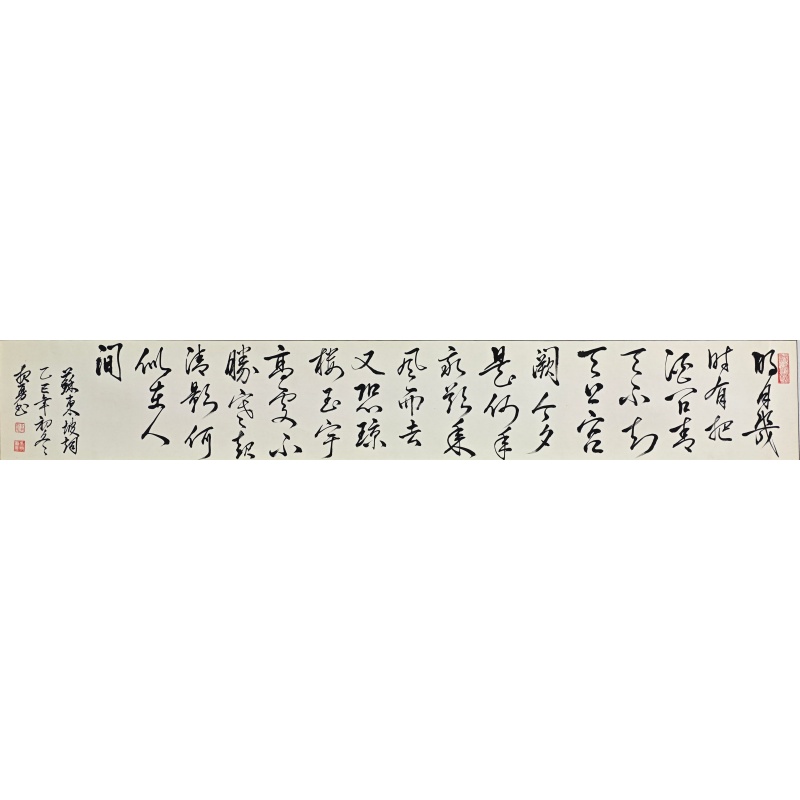 明月幾
时有把
酒问青
天不知
天上宫
阙今夕
是何年
我欲乘
風而去
又恐琼
楼玉宇
高處不
勝寒起
清影何
似在人
间
蘇東坡词
乙巳年初冬